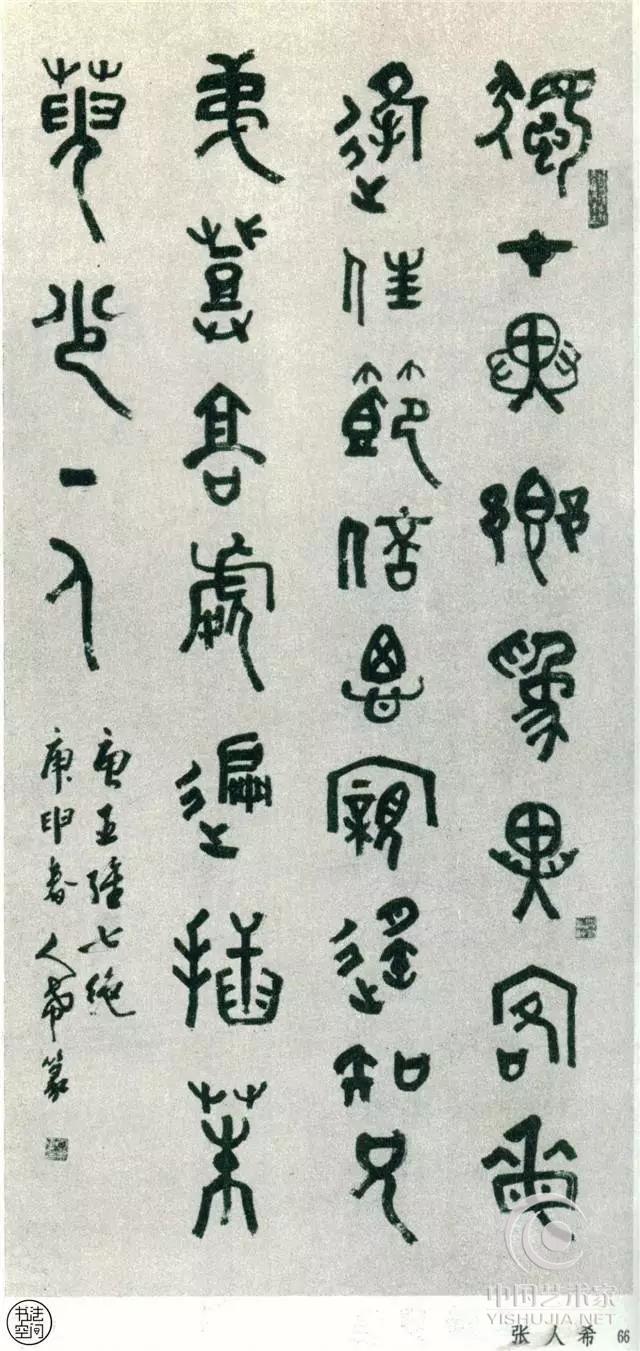 獨在異鄉為異客每
逢佳節倍思親遙知兄
弟登高處遍插茱
萸少一人
唐王維七絕
庚申春人希篆
中国艺术家
YISHUJIA.NET
书法空间
张人希 66